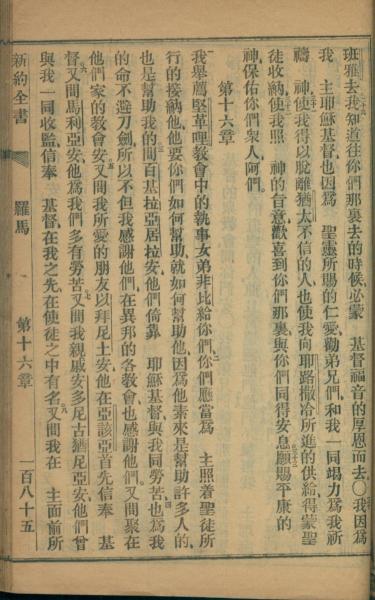 班雅去我知道往你們那裏去的時候必蒙　基督福音的厚恩而去〇我因爲
我　主耶穌基督也因爲　聖靈所賜的仁愛勸弟兄們和我一同竭力爲我祈
禱　神使我得以脫離猶太不信的人也使我向耶路撒冷所進的供給得蒙聖
徒收納使我照　神的旨意歡喜到你們那裏與你們同得安息願賜平康的
神保佑你們衆人阿們
第十六章
我舉薦堅革哩敎會中的執事女弟非比給你們你們應當爲　主照着聖徒所
行的接納他他要你們如何幫助就如何幫助他因爲他素來是幫助許多人的
也是幫助我的問百基拉亞居拉安他們倚靠　耶穌基督與我同勞苦也爲我
的命不避刀劍所以不但我感謝他們在異邦的各敎會也感謝他們又問聚在
他們家的敎會安又問我所愛的朋友以拜尼土安他在亞該亞首先信奉　基
督又問馬利亞安他爲我們多有勞苦又問我親戚安多尼古猶尼亞安他們曾
與我一同收監信奉　基督在我之先在使徒之中有名又問我在　主面前所
新約全書
羅馬
第十六章
一百八十五